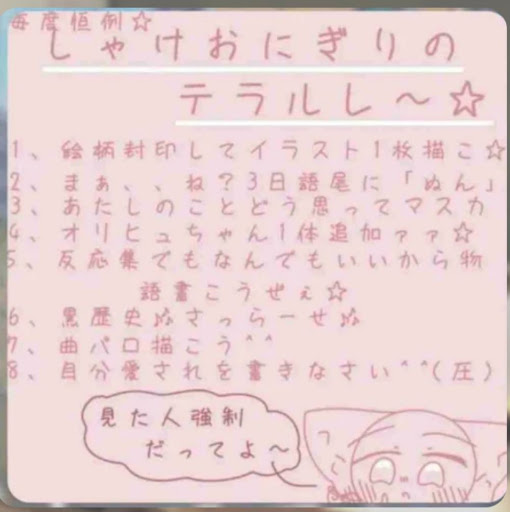 毎度恒例☆
しゃけおにぎりの
テラルし～☆
1、絵柄封印してイラスト1枚描こ☆
2、まぁ、、ね？3日語尾に「ぬん」
3、あたしのことどう思ってマスカ
4、オリヒュちゃん1体追加ァァ☆
5、反応集でもなんでもいいから物
語書こうぜぇ☆
6、黒歴史🎶さっらーせ🎶
7、曲パロ描こう^^
8、自分愛されを書きなさい^^(圧)
見た人強制
だってよ～